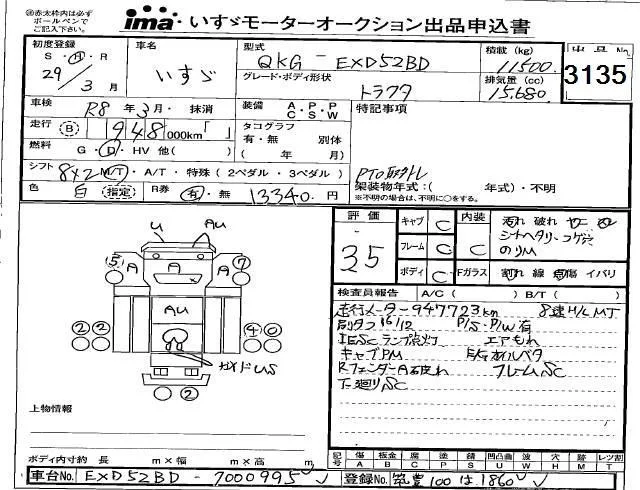 ◎赤太枠内は必ず
ボールペンで
ご記入下さい。
ima いすゞモーターオークション出品申込書
初度登録 S・H・R 29/3月
車名 いすゞ
型式 QKG-EXD52BD
積載 (kg) 11500
出品No. 3135
グレード・ボディ形状 トラクタ
排気量 (cc) 15,680
車検 R8年3月・抹消
装備 A・P・P C・S・W
特記事項
走行 B 948,000km「 」
タコグラフ 有・無 別体 ( 年 月)
燃料 G・D・HV 他( )
PTO取外し
シフト 8×2 M/T・A/T・特殊 (2ペダル・3ペダル)
架装物年式:( 年式)・不明
※不明の場合は、不明に○をする。
色 白 指定 R券 有・無 13340円
評価 35
キャブ C
フレーム C
ボディ C
内装 C
Fガラス
汚れ 破れ
シートヘタリ・コゲ穴
のりM
割れ 線 点傷 イバリ
検査員報告 A/C ( ) B/T ( )
走行メーター947723km 8速H/L MT
P/S・P/W有
ランプ点灯 エアもれ
キャブPM
フレームSC
下廻りSC
U AU
5 A A 7
AU
2 2 4 0
2
上物情報
ボディ内寸約 長 m×幅 m×高 m
記号 傷 板金 腐 塗 錆 凹凸曲 波 穴 跡 レツ割
A B C P S U W H M T
車台No. EXD52BD-7000995
登録No. 筑豊100は1860